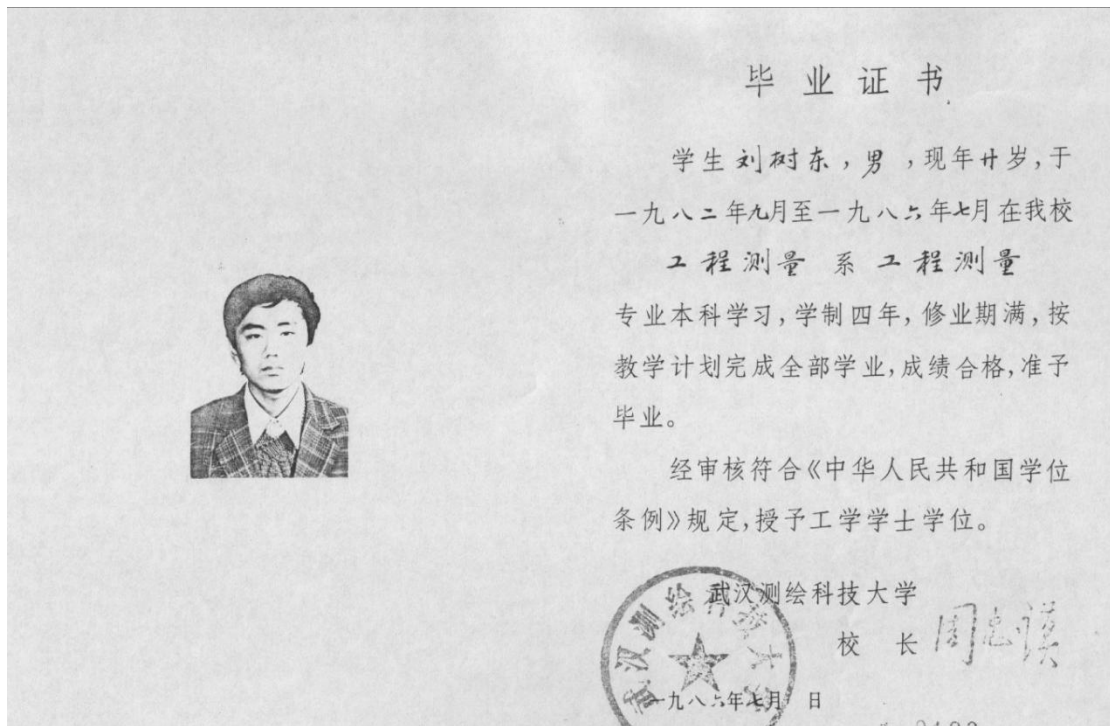 毕业证书
学生刘树东，男，现年廿岁，于
一九八二年九月至一九八六年七月在我校
工程测量 系 工程测量
专业本科学习，学制四年，修业期满，按
教学计划完成全部学业，成绩合格，准予
毕业。
经审核符合《中华人民共和国学位
条例》规定，授予工学学士学位。
武汉测绘科技大学
校 长
一九八六年七月 日